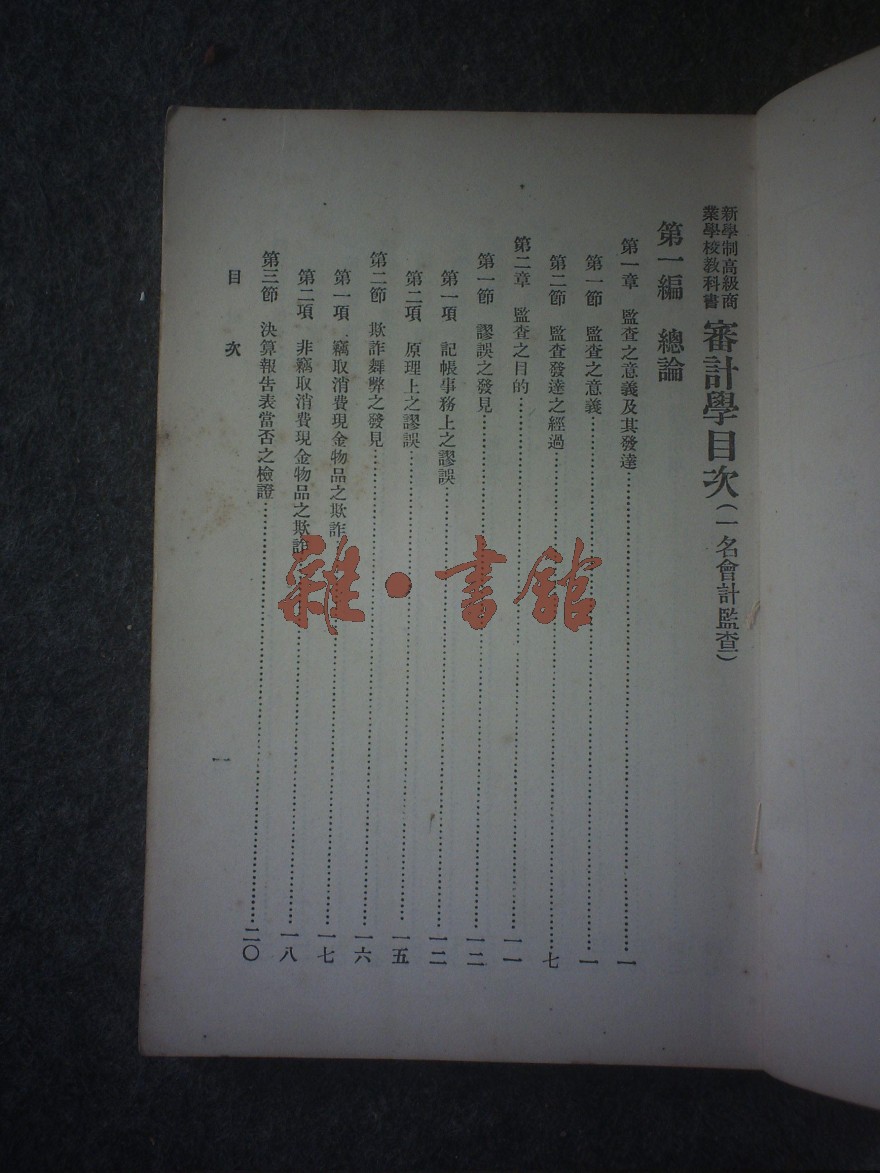 新學制高級商
業學校教科書
審計學目次(一名會計監查)
第一編 總論
第一章 監查之意義及其發達……一
第一節 監查之意義……一
第二節 監查發達之經過……七
第二章 監查之目的……一一
第一節 謬誤之發見……一二
第一項 記帳事務上之謬誤……一二
第二項 原理上之謬誤……一五
第二節 欺詐舞弊之發見……一六
第一項 竊取消費現金物品之欺詐……一七
第二項 非竊取消費現金物品之欺詐……一八
第三節 決算報告表當否之檢證……二〇
目次
一
雜·書館